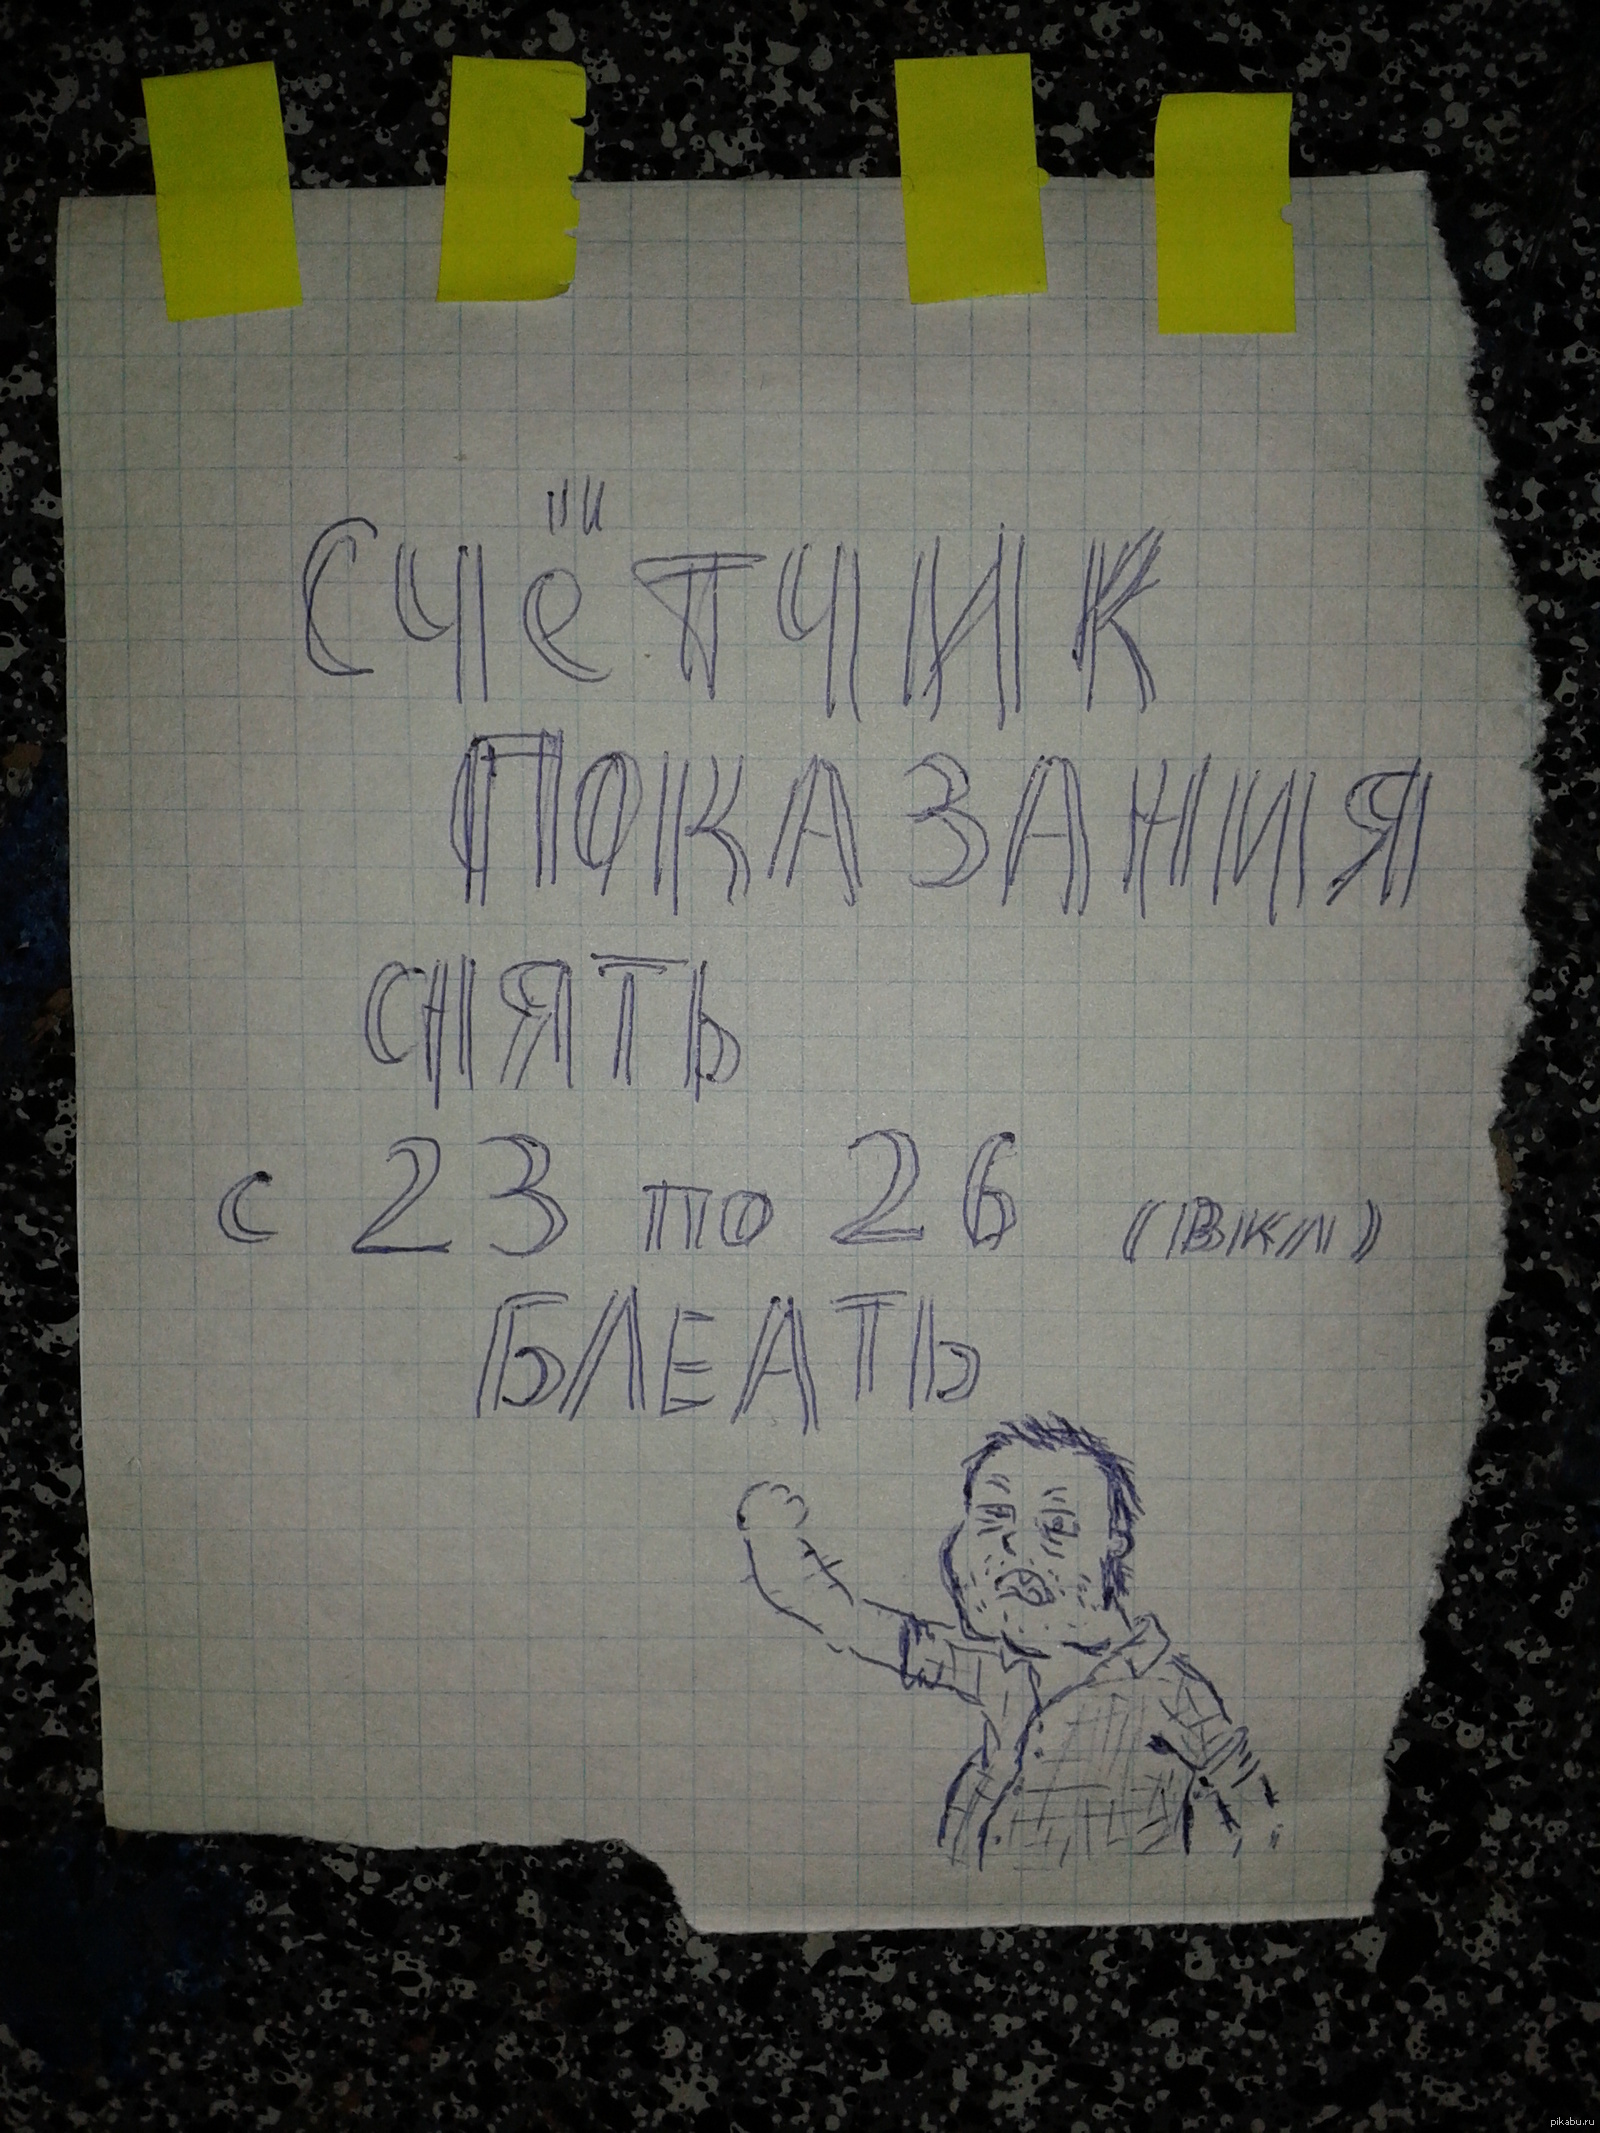 Счётчик
ПОКАЗАНИЯ
СНЯТЬ
с 23 по 26 (вкл)
БЛЕАТЬ
pikabu.ru